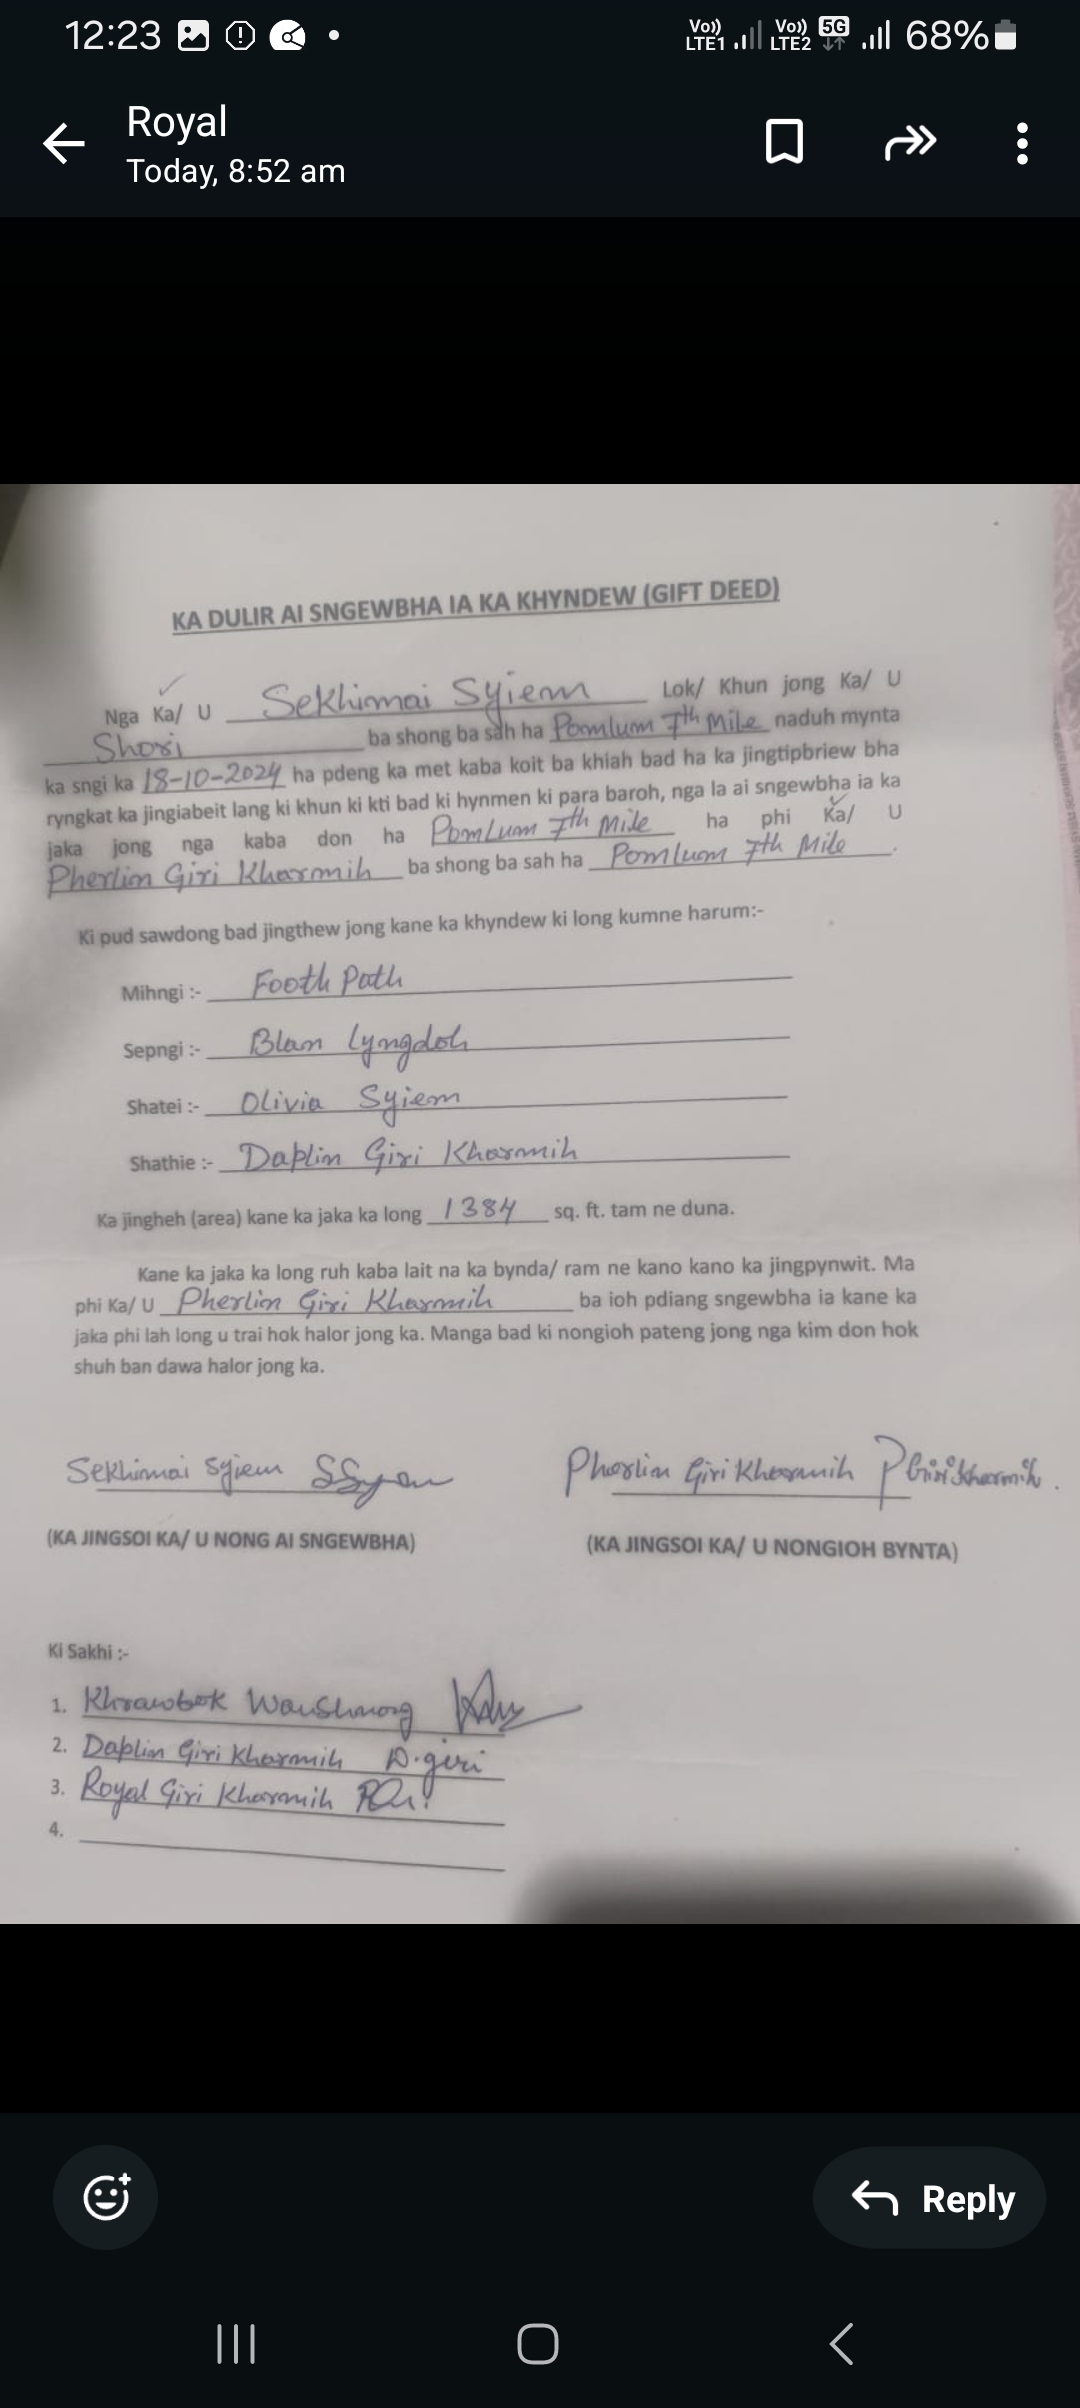 12:23
Vo)) LTE1 Vo)) LTE2 5G 68%
Royal
Today, 8:52 am
KA DULIR AI SNGEWBHA IA KA KHYNDEW (GIFT DEED)
Nga Ka/ U Sekhimai Syiem Lok/ Khun jong Ka/ U
Shori ba shong ba sah ha Pomlum 7th Mile naduh mynta
ka sngi ka 18-10-2024 ha pdeng ka met kaba koit ba khiah bad ha ka jingtipbriew bha
ryngkat ka jingiabeit lang ki khun ki kti bad ki hynmen ki para baroh, nga la ai sngewbha ia ka
jaka jong nga kaba don ha Pomlum 7th Mile ha phi Ka/ U
Pherlin Giri Kharmih ba shong ba sah ha Pomlum 7th Mile.
Ki pud sawdong bad jingthew jong kane ka khyndew ki long kumne harum:-
Mihngi :- Footh Path
Sepngi :- Blan Lyngdoh
Shatei :- Olivia Syiem
Shathie :- Daplin Giri Kharmih
Ka jingheh (area) kane ka jaka ka long 1384 sq. ft. tam ne duna.
Kane ka jaka ka long ruh kaba lait na ka bynda/ ram ne kano kano ka jingpynwit. Ma
phi Ka/ U Pherlin Giri Kharmih ba ioh pdiang sngewbha ia kane ka
jaka phi lah long u trai hok halor jong ka. Manga bad ki nongioh pateng jong nga kim don hok
shuh ban dawa halor jong ka.
Sekhimai Syiem SSyiem Pherlin Giri Kharmih PGiri Kharmih.
(KA JINGSOI KA/ U NONG AI SNGEWBHA) (KA JINGSOI KA/ U NONGIOH BYNTA)
Ki Sakhi :-
1. Khrawbok Wanshnong
2. Daplin Giri Kharmih D.giri
3. Royal Giri Kharmih
4.
Reply